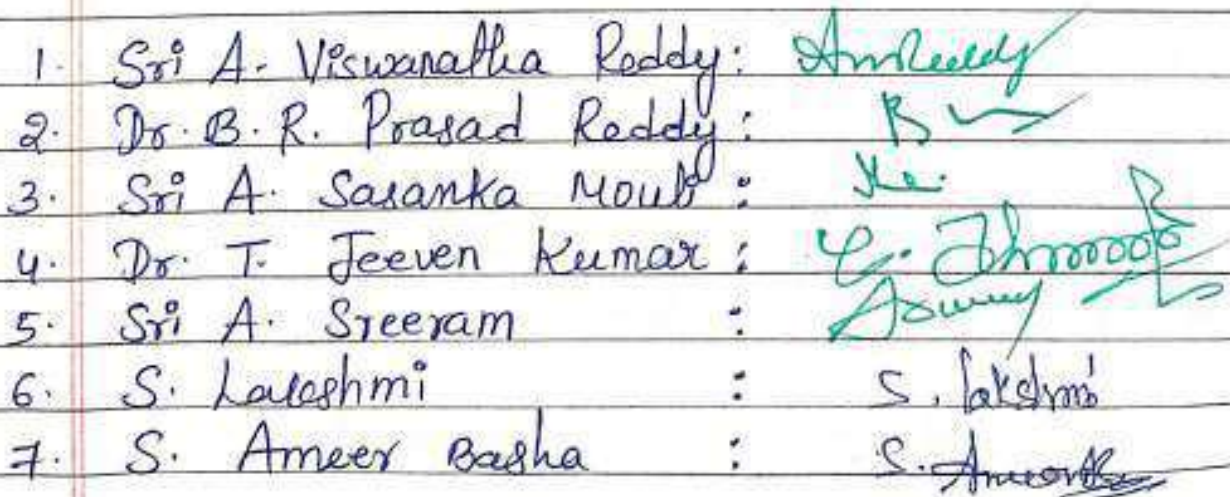 1. Sri A. Viswanatha Reddy:
2. Dr. B. R. Prasad Reddy:
3. Sri A. Sasanka Mouli :
4. Dr. T. Jeeven Kumar :
5. Sri A. Sreeram :
6. S. Lakshmi : S. lakshmi
7. S. Ameer Basha : S.